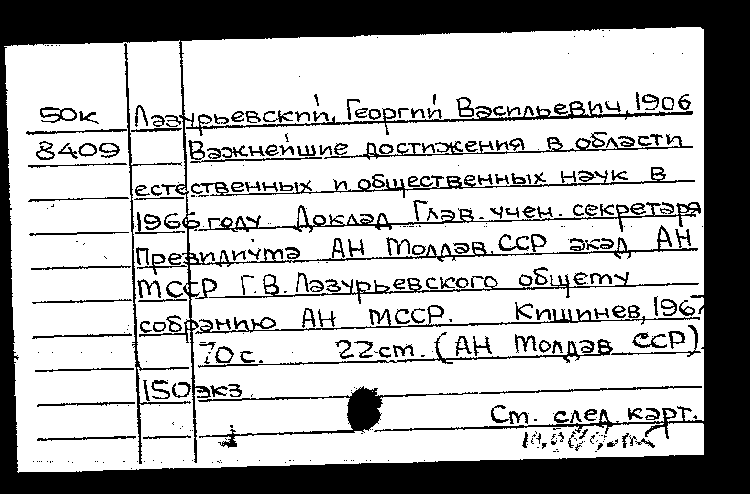 50к Лазурьевский, Георгий Васильевич, 1906
8409 Важнейшие достижения в области
естественных и общественных наук в
1966 году. Доклад Глав. учен. секретаря
Президиума АН Молдав. ССР акад. АН
МССР Г.В. Лазурьевского общему
собранию АН МССР. Кишинев, 1967
70 с. 22 см. (АН Молдав ССР).
150 экз
Ст. след. карт.